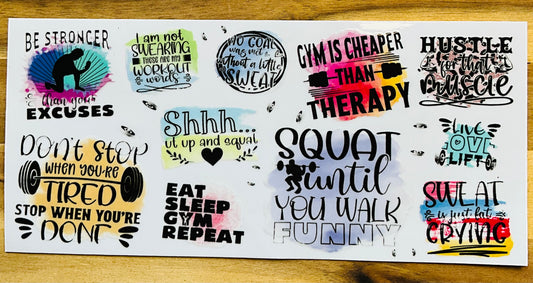 BE STRONGER
than your
EXCUSES
I am not
SWEARING
THESE ARE MY
WORKOUT
words
NO GOAL
was met
without a little
SWEAT
GYM IS CHEAPER
THAN
THERAPY
HUSTLE
for that
muscle
Shhh...
ut up and squat
DON'T STOP
WHEN YOU'RE
TIRED
STOP WHEN YOU'RE
DONE
EAT
SLEEP
GYM
REPEAT
SQUAT
until
YOU WALK
FUNNY
LIVE
LOVE
LIFT
SWEAT
is just fat
CRYING